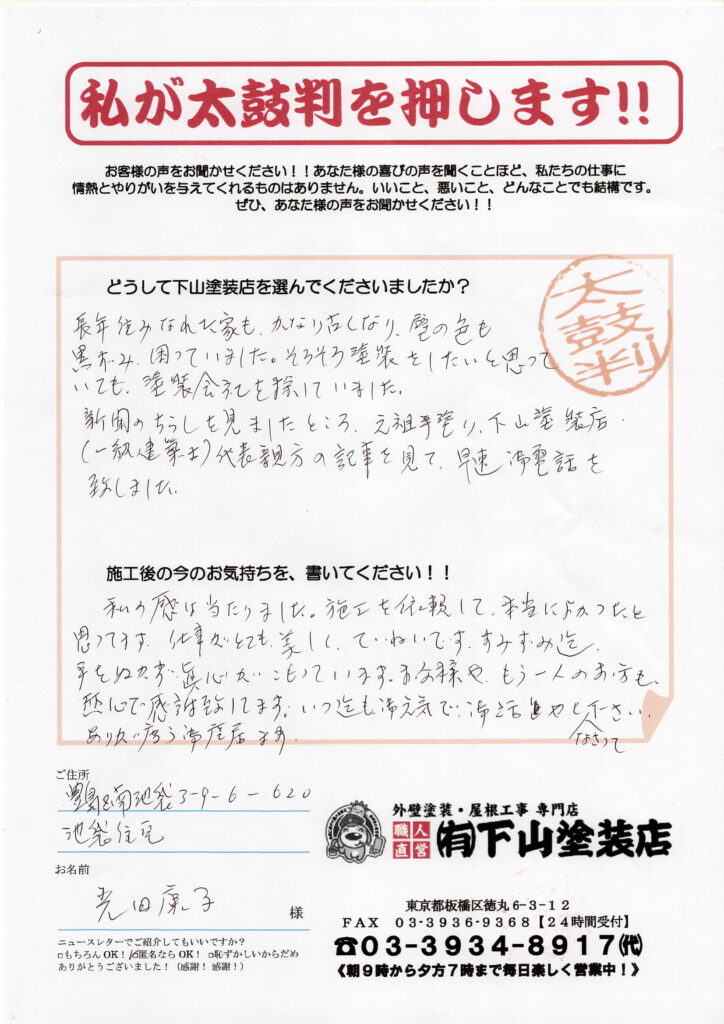 私が太鼓判を押します!!
お客様の声をお聞かせください！！あなた様の喜びの声を聞くことほど、私たちの仕事に
情熱とやりがいを与えてくれるものはありません。いいこと、悪いこと、どんなことでも結構です。
ぜひ、あなた様の声をお聞かせください！！
太鼓判
どうして下山塗装店を選んでくださいましたか？
長年住みなれた家も、かなり古くなり、壁の色も
黒ずみ、困っていました。そろそろ塗装をしたいと思って
いても、塗装会社を探していました。
新聞のちらしを見ましたところ、元祖手塗り、下山塗装店
(一級建築士)代表親方の記事を見て、早速御電話を
致しました。
施工後の今のお気持ちを、書いてください！！
私の感は当たりました。施工を依頼して、本当によかったと
思ってます。仕事がとても、美しく、ていねいです。すみずみ迄、
手をぬかず、真心がこもっています。お父様や、もう一人のお方も、
熱心で感謝致してます。いつ迄も御元気で、御活やく下さい。
なさって
ありがとう御座居ます。
ご住所
南池袋3-9-6-620
池袋住宅
お名前
光田康子
様
ニュースレターでご紹介してもいいですか？
□もちろんOK！ □匿名ならOK！ □恥ずかしいからだめ
ありがとうございました！（感謝！感謝！）
外壁塗装・屋根工事 専門店
職人直営
㈲下山塗装店
東京都板橋区徳丸6-3-12
FAX 03-3936-9368【24時間受付】
☎03-3934-8917㈹
《朝9時から夕方7時まで毎日楽しく営業中！》